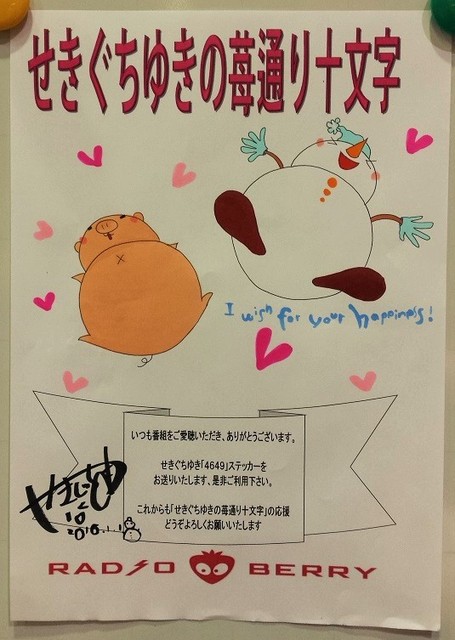 せきぐちゆきの苺通り十文字
I wish for your happiness!
いつも番組をご愛聴いただき、ありがとうございます。
せきぐちゆき「4649」ステッカーを
お送りいたします、是非ご利用下さい。
これからも「せきぐちゆきの苺通り十文字」の応援
どうぞよろしくお願いいたします
RADIO BERRY